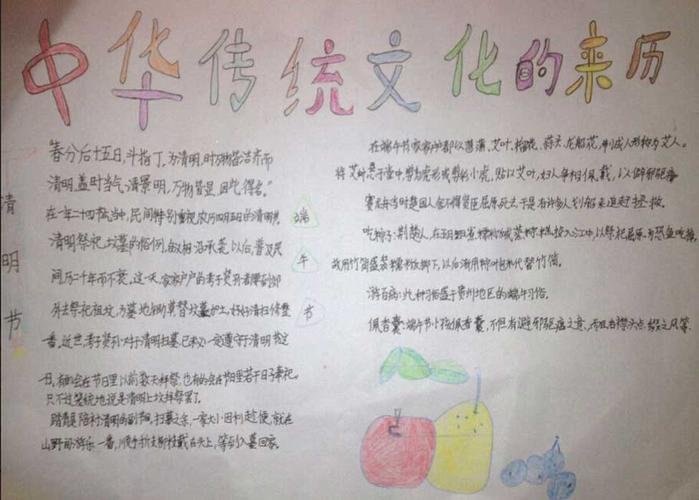 中华传统文化的来历
清明节
"春分后十五日,斗指丁,为清明,时万物皆洁齐而
清明,盖时当气清景明,万物皆显,因此得名。"
在一年二十四节气中,民间特别重视农历四月五日的清明
清明祭祀坟墓的俗例,相沿承袭,以后普及民
间历二千年而不衰,这一天,家家户户的孝子贤孙都到郊
外去祭祀祖坟,为墓地铲除草壅墓加土,好好清扫修整
一番,近世,孝子贤孙对于清明扫墓已不一定遵守于清明
日,有的会在节日里以前数天拜祭,也有的会在节日里若干日子奉祀。
只不过笼统地说是清明上坟拜祭罢了。
踏青是陪衬清明的副节目,扫墓之余,一家大小因利趁便,就在
山野间游乐一番,顺手折支树枝戴在头上,等到入暮回家。
端午节
在端午节家家户户都以菖蒲、艾叶、榴花、蒜头、龙船花,制成人形称为艾人。
将艾叶悬于堂中,剪为虎形或剪彩小虎,贴以艾叶,妇人争相佩戴,以僻邪驱瘴
赛龙舟当时楚国人舍不得贤臣屈原死去于是有许多人划船来追赶拯救。
吃粽子:荆楚人,在五月五日煮糯米饭或蒸粽糕投入江中,以祭祀屈原,为恐鱼吃掉,
故用竹筒盛装糯米饭掷下,以后渐用粽叶包米代替竹筒。
游百病:此种习俗盛于贵州地区的端午习俗。
佩香囊:端午节小孩佩香囊,不但有避邪驱瘟之意,而且有襟头点缀之风